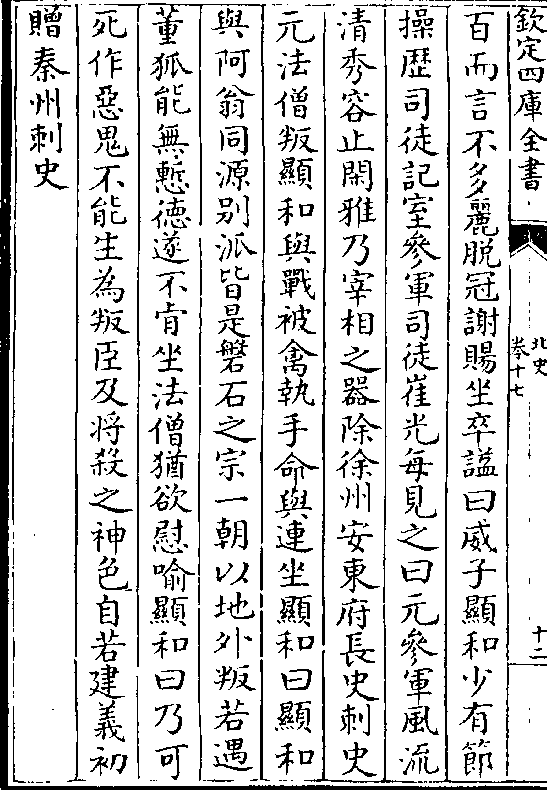 欽定四庫全書
北史
卷十七
十二
百而言不多麗脫冠謝賜坐卒謚曰威子顯和少有節
操歴司徒記室參軍司徒崔光每見之曰元參軍風流
清秀容止閑雅乃宰相之器除徐州安東府長史刺史
元法僧叛顯和與戰被禽執手命與連坐顯和曰顯和
與阿翁同源别派皆是磐石之宗一朝以地外叛若遇
董狐能無慙徳遂不肯坐法僧猶欲慰喻顯和曰乃可
死作惡鬼不能生為叛臣及将殺之神色自若建義初
贈秦州刺史